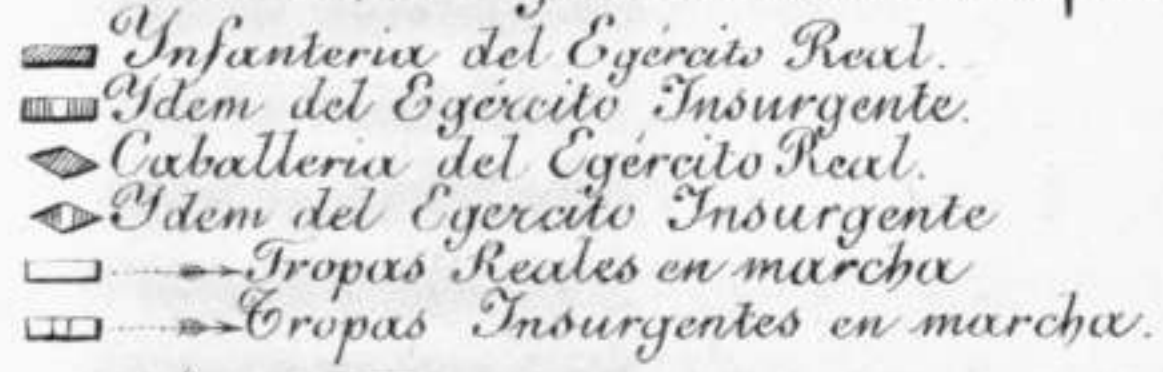 Ynfanteria del Egército Real.
Ydem del Egército Insurgente.
Caballeria del Egército Real.
Ydem del Egercito Insurgente
Tropas Reales en marcha
Tropas Insurgentes en marcha.